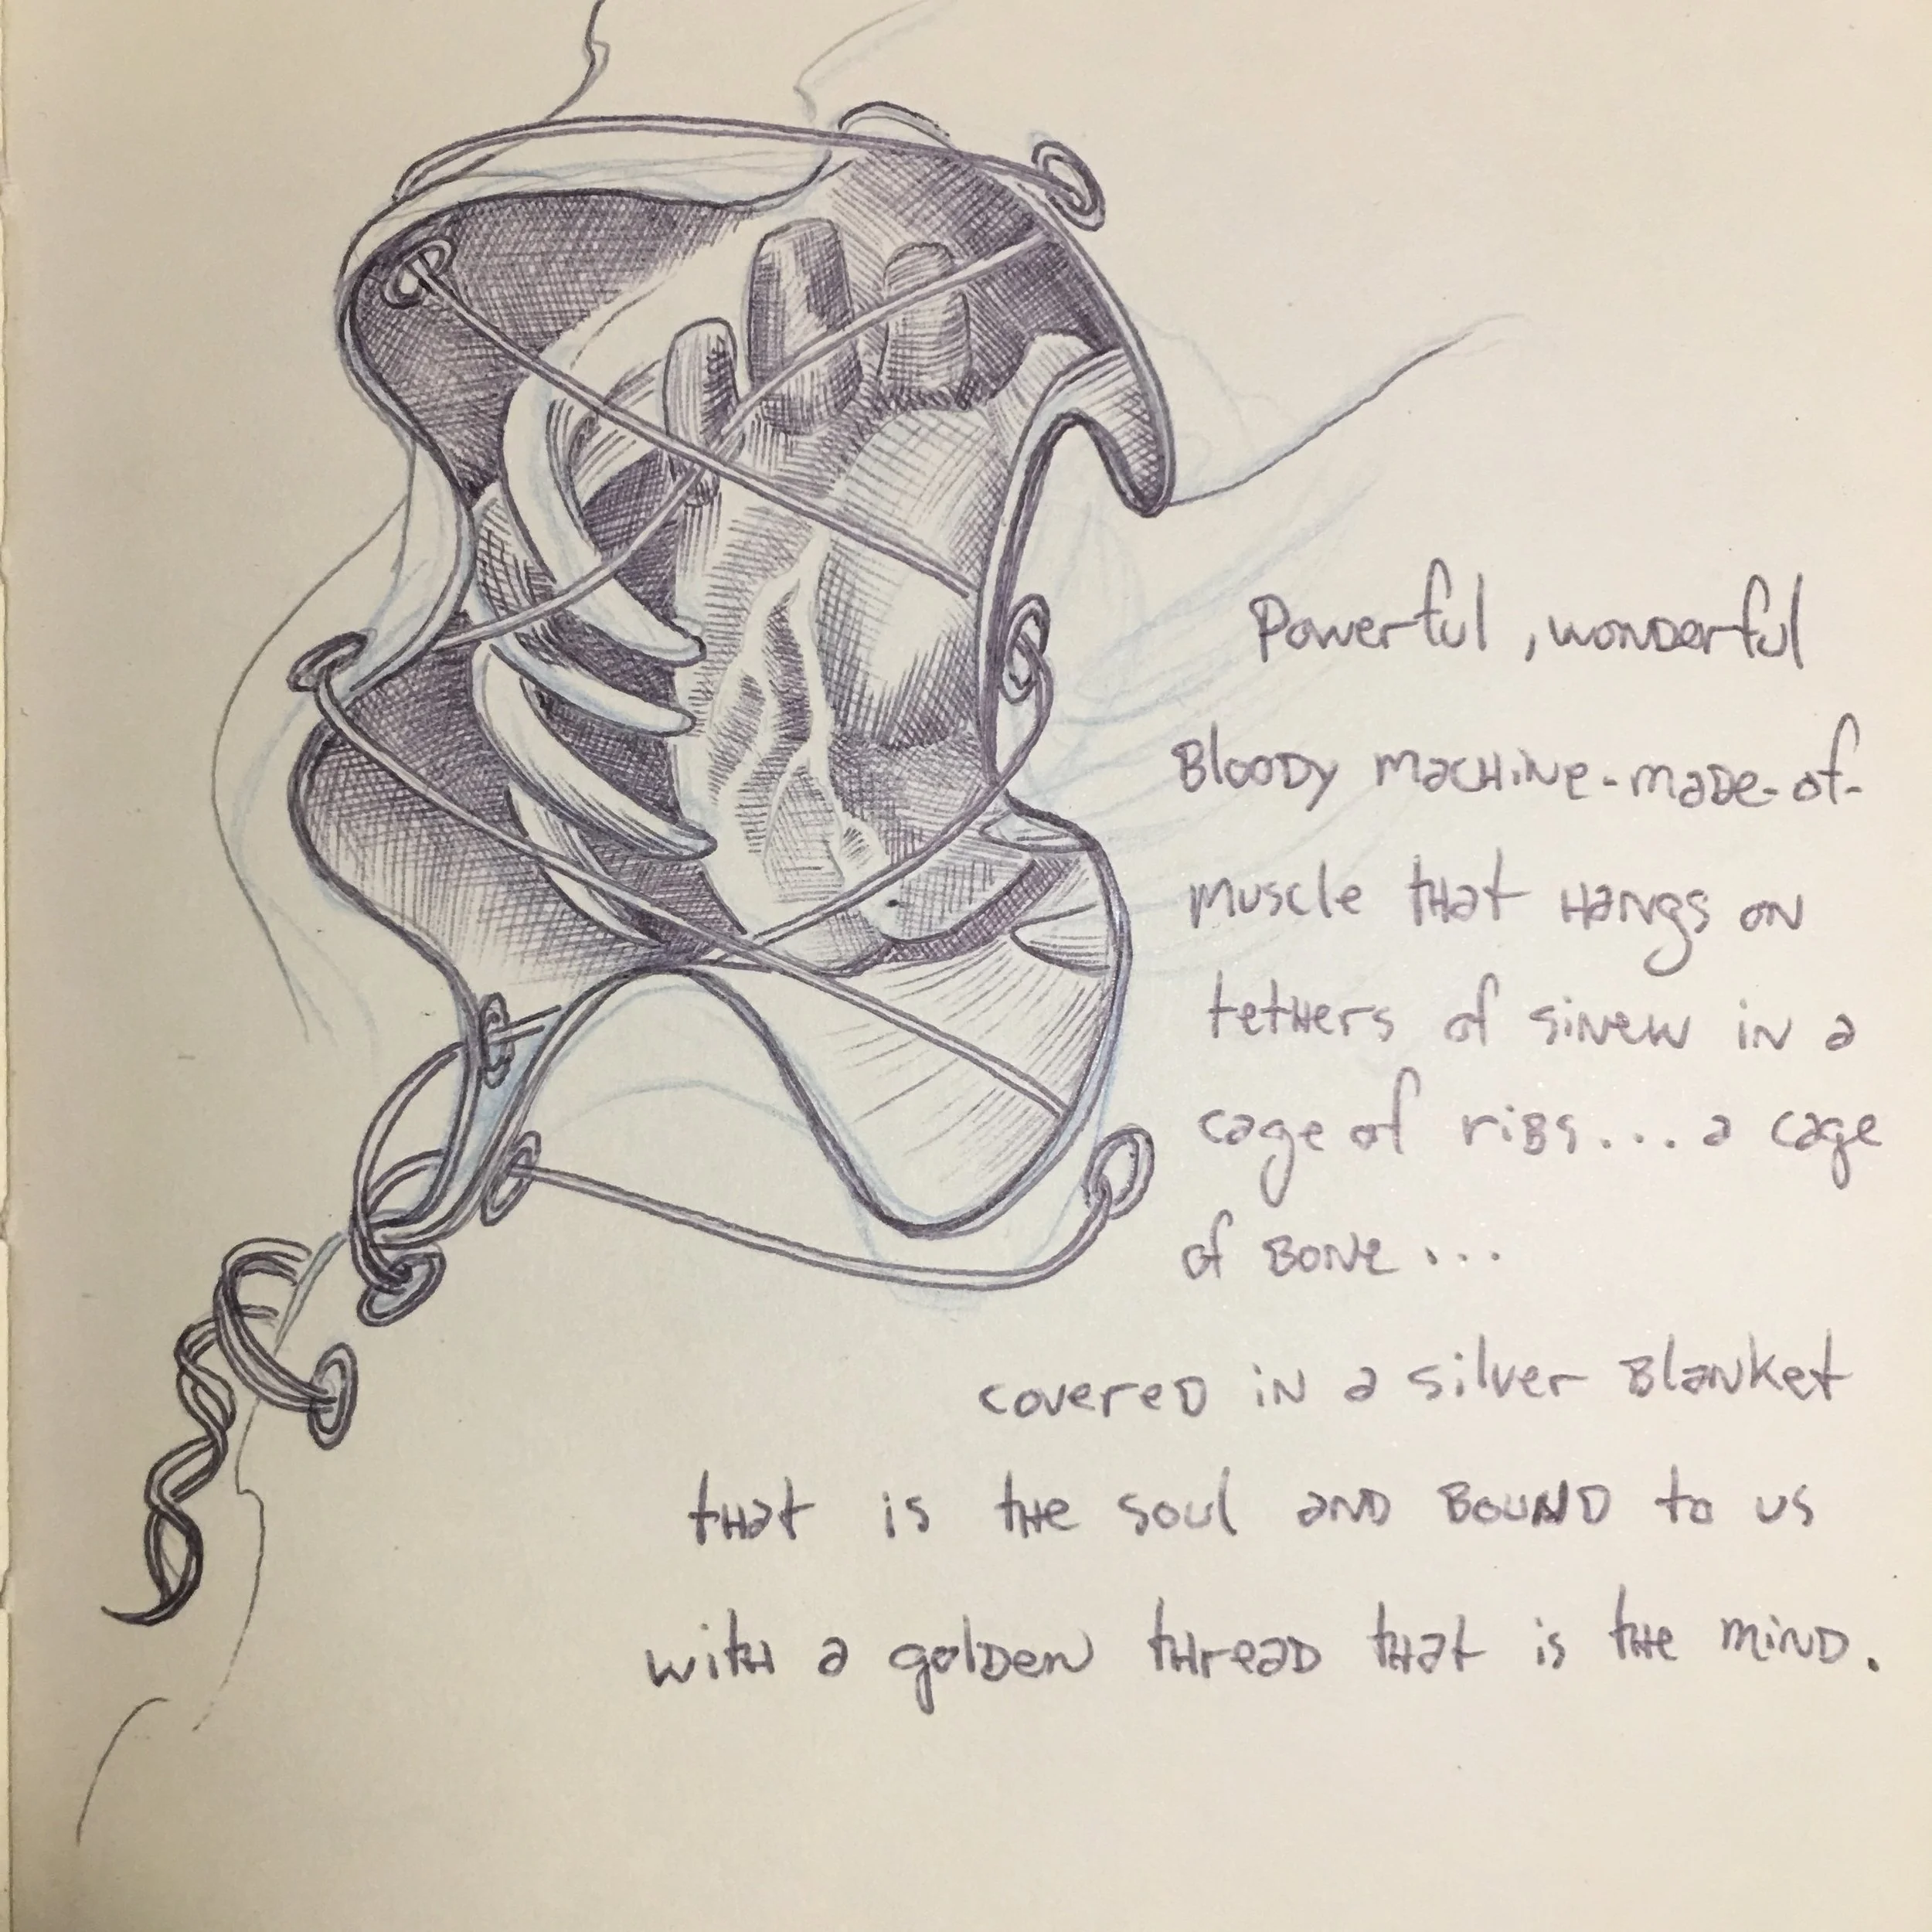 Powerful, wonderful
Bloody machine-made-of-
muscle that hangs on
tethers of sinew in a
cage of ribs... a cage
of bone...
covered in a silver blanket
that is the soul and bound to us
with a golden thread that is the mind.